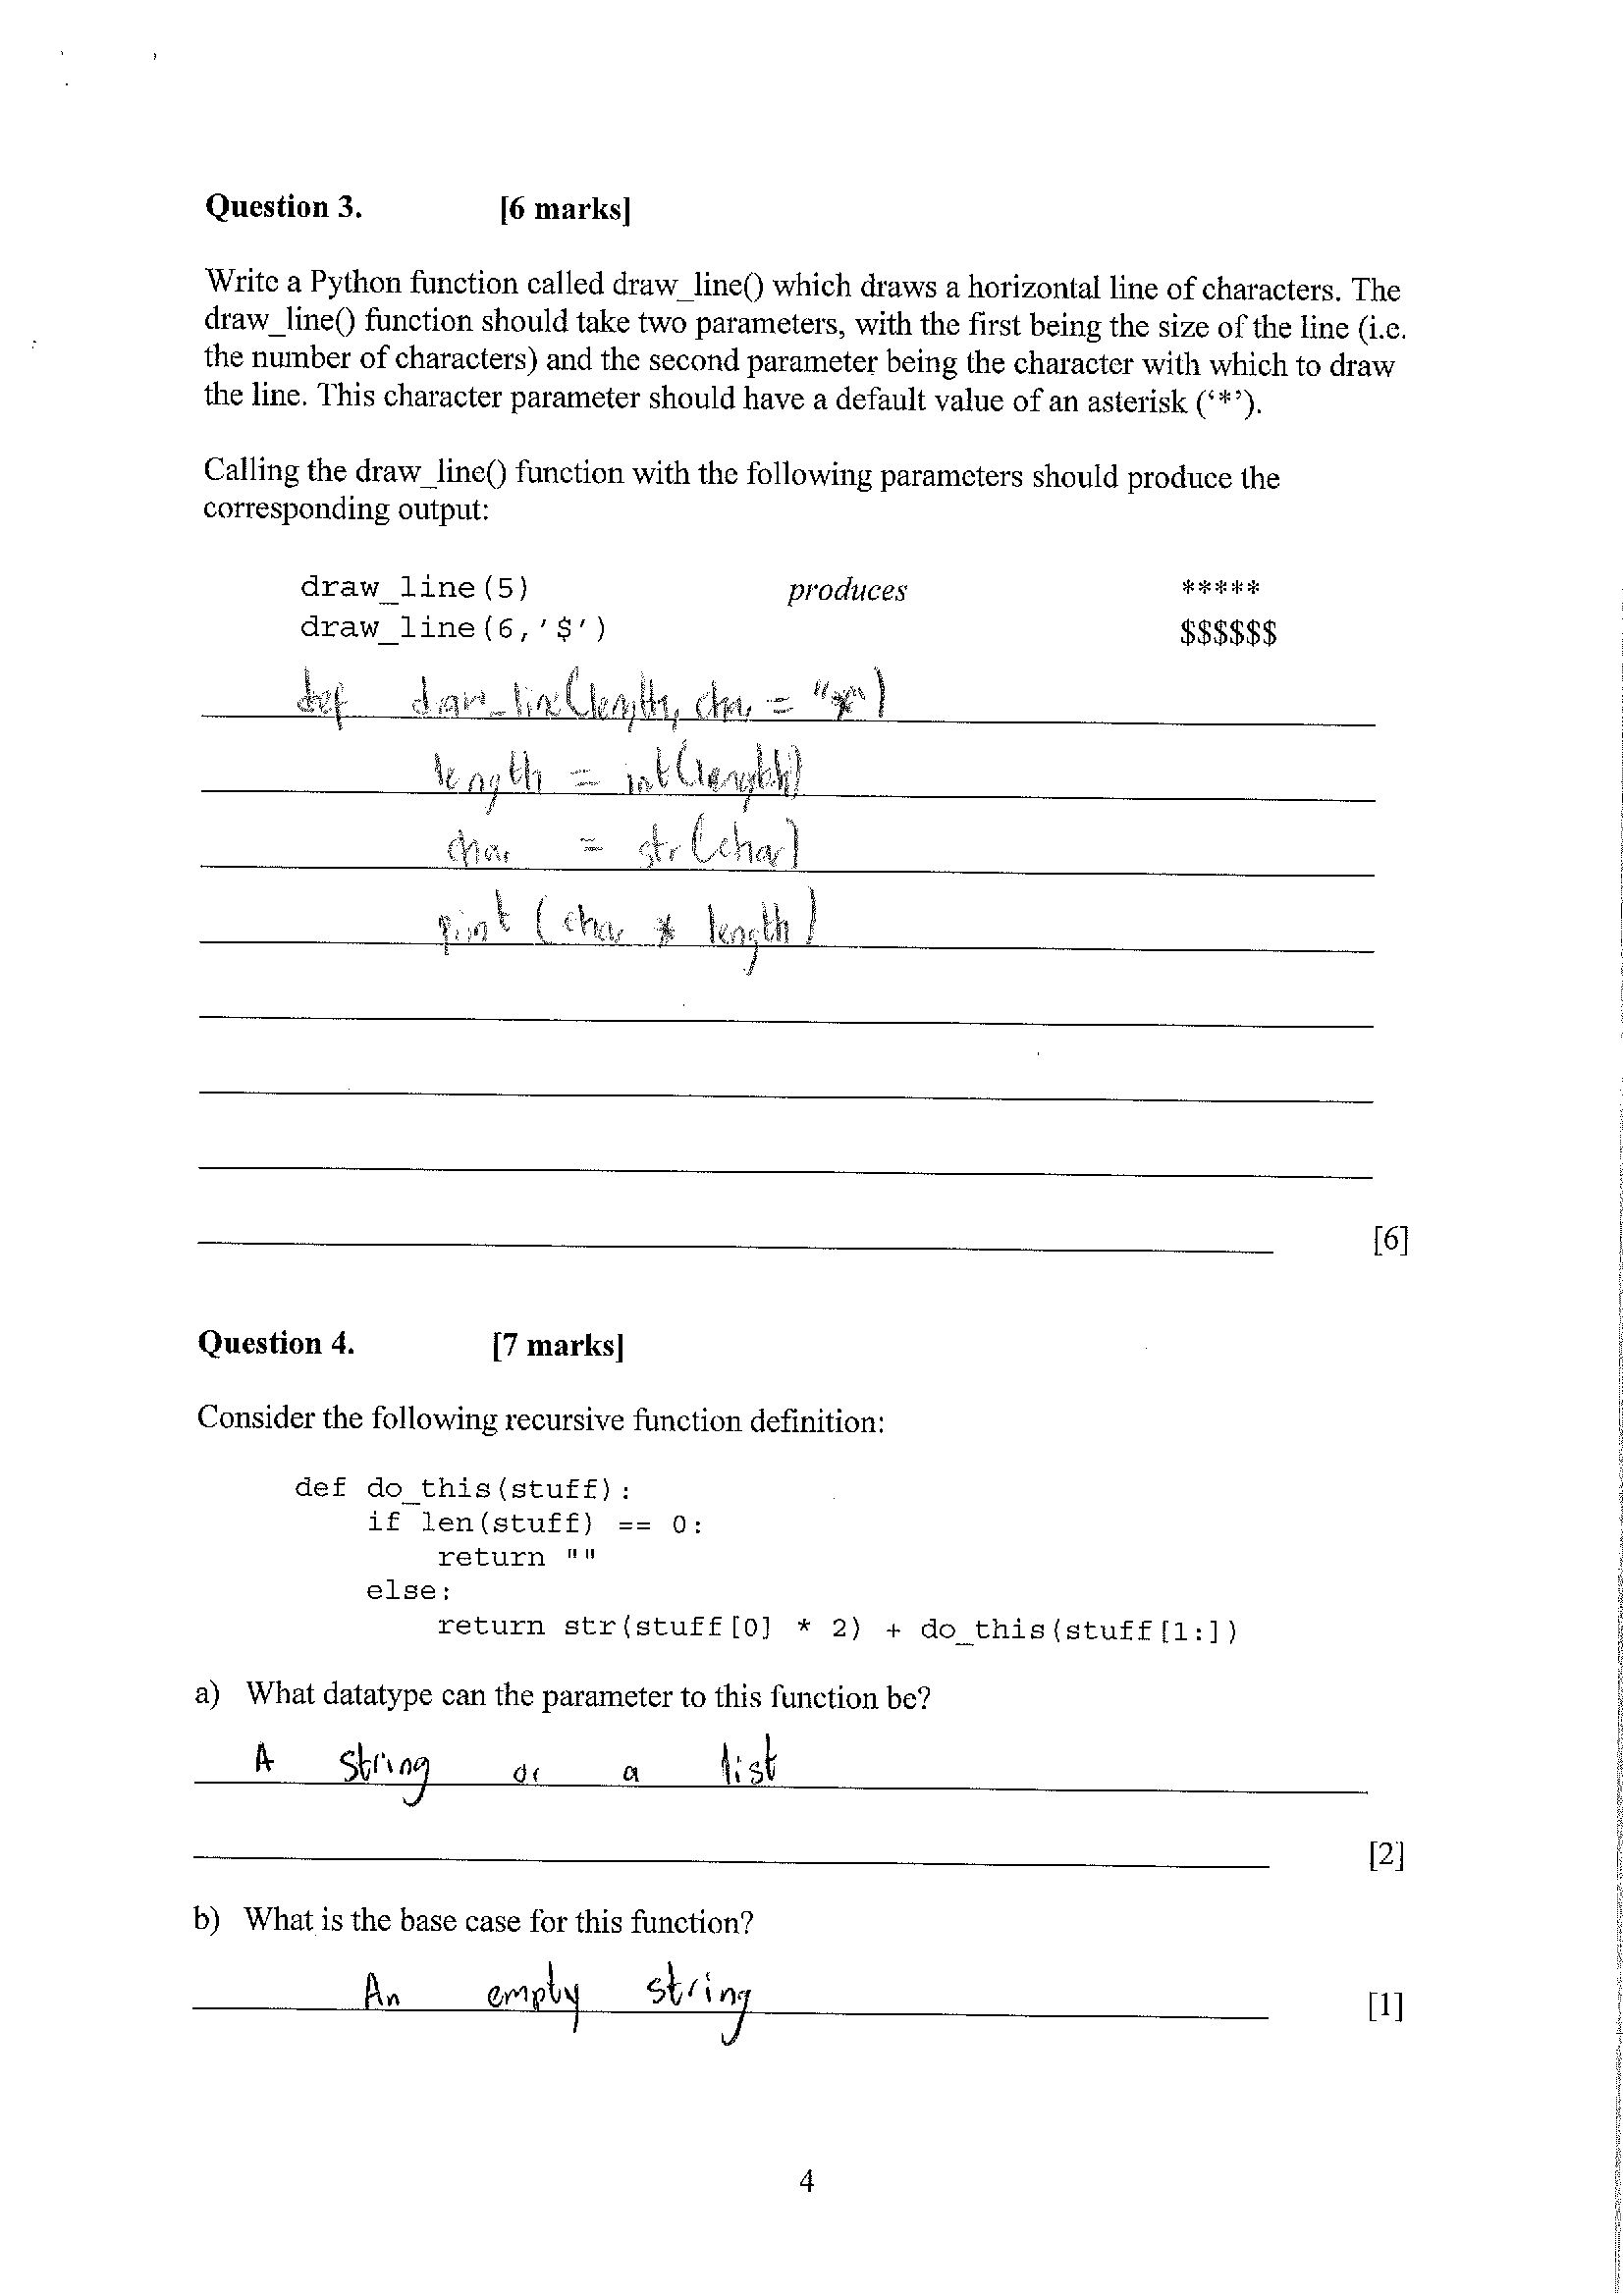 Question 3. [6 marks]
Write a Python function called draw_line() which draws a horizontal line of characters. The
draw_line() function should take two parameters, with the first being the size of the line (i.e.
the number of characters) and the second parameter being the character with which to draw
the line. This character parameter should have a default value of an asterisk (‘*’).
Calling the draw_line() function with the following parameters should produce the
corresponding output:
draw_line(5) produces *****
draw_line(6,'$') $$$$$$
def draw_line(length, char = "*")
length = int(length)
char = str(char)
print (char * length)
[6]
Question 4. [7 marks]
Consider the following recursive function definition:
def do_this(stuff):
if len(stuff) == 0:
return ""
else:
return str(stuff[0] * 2) + do_this(stuff[1:])
a) What datatype can the parameter to this function be?
A string or a list
[2]
b) What is the base case for this function?
An empty string
[1]
4